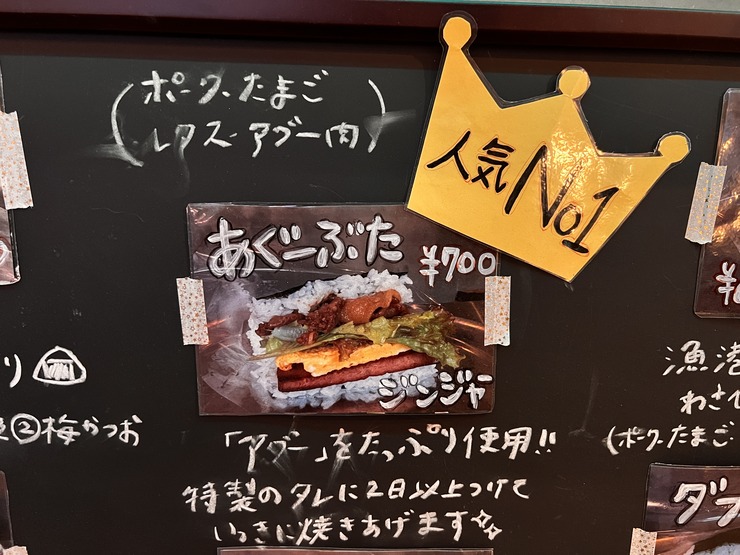 (ポーク、たまご
レタス、アグー肉)
人気
No1
あぐーぶた
¥700
ジンジャ
「アグー」をたっぷり使用!!
特製のタレに2日以上つけて
いっきに焼きあげます
り
②梅かつお
漁港
わさび
(ポーク、たまご
ダブ